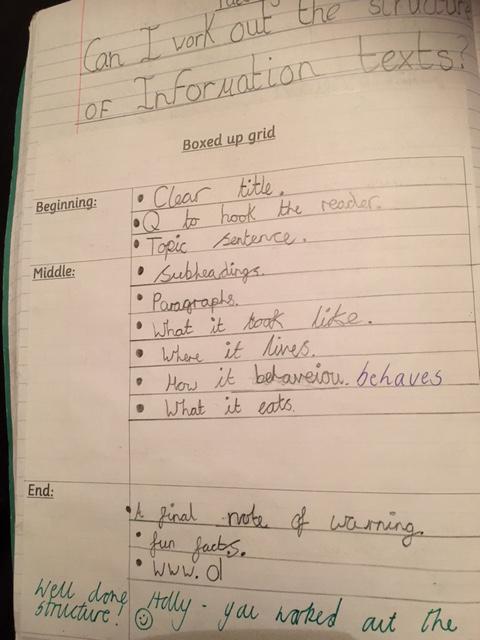 Can I work out the structure
of Information texts?
Boxed up grid
Beginning:
• Clear title.
• Q to hook the reader.
• Topic sentence.
Middle:
• Subheadings.
• Paragraphs.
• What it took like.
• Where it lives.
• How it behaveiou. behaves
• What it eats.
End:
• A final note of warning.
• fun facts.
• www.
Well done Holly - you worked out the
structure!